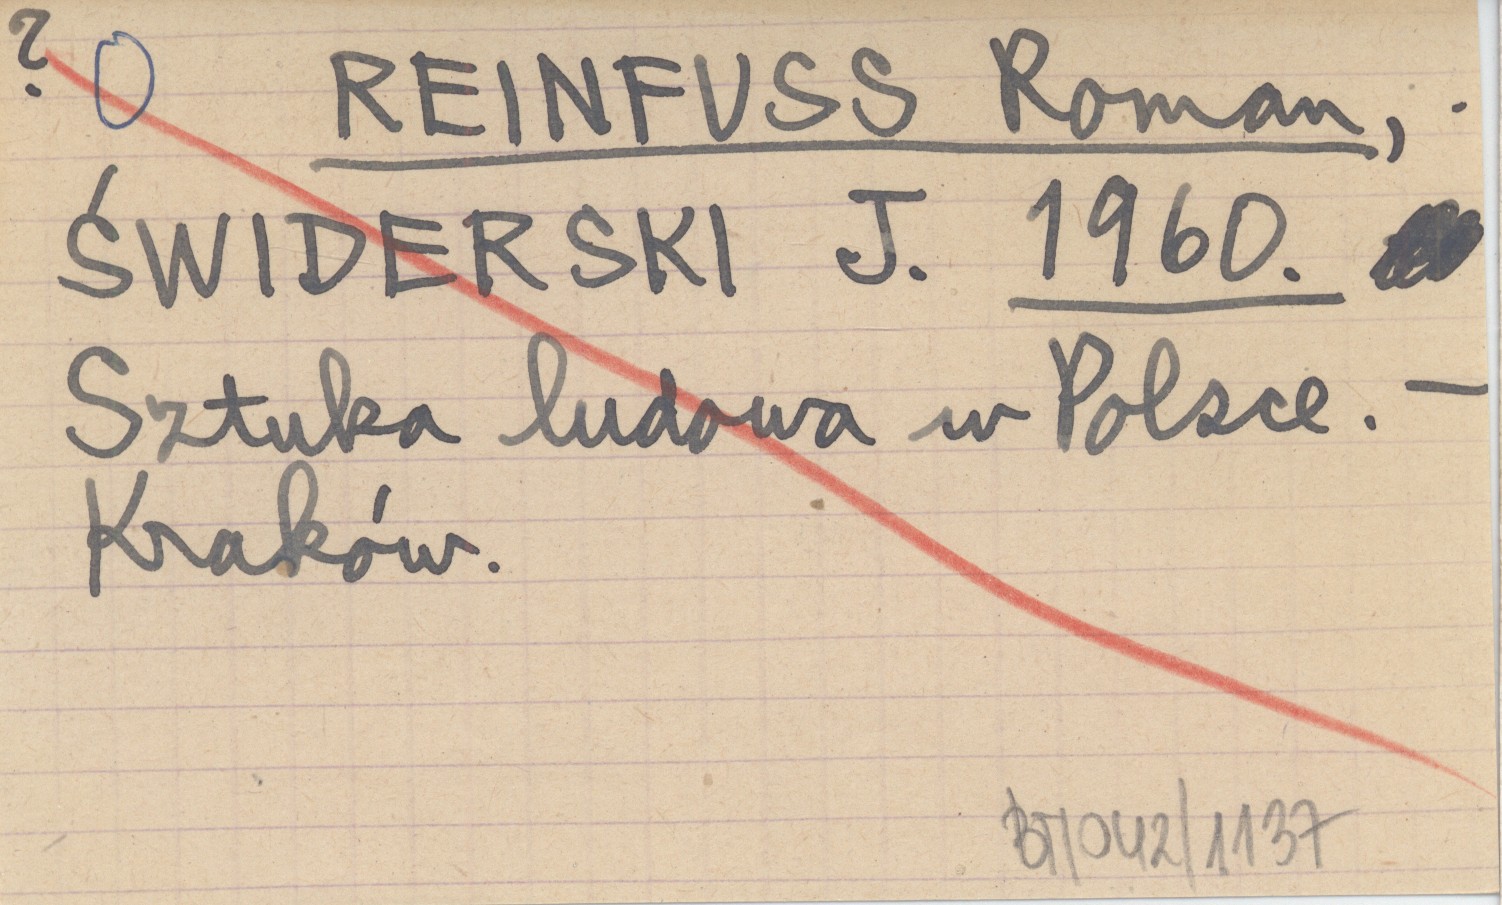 ? O REINFUSS Roman,
ŚWIDERSKI J. 1960.
Sztuka ludowa w Polsce. —
Kraków.
BT/042/1137